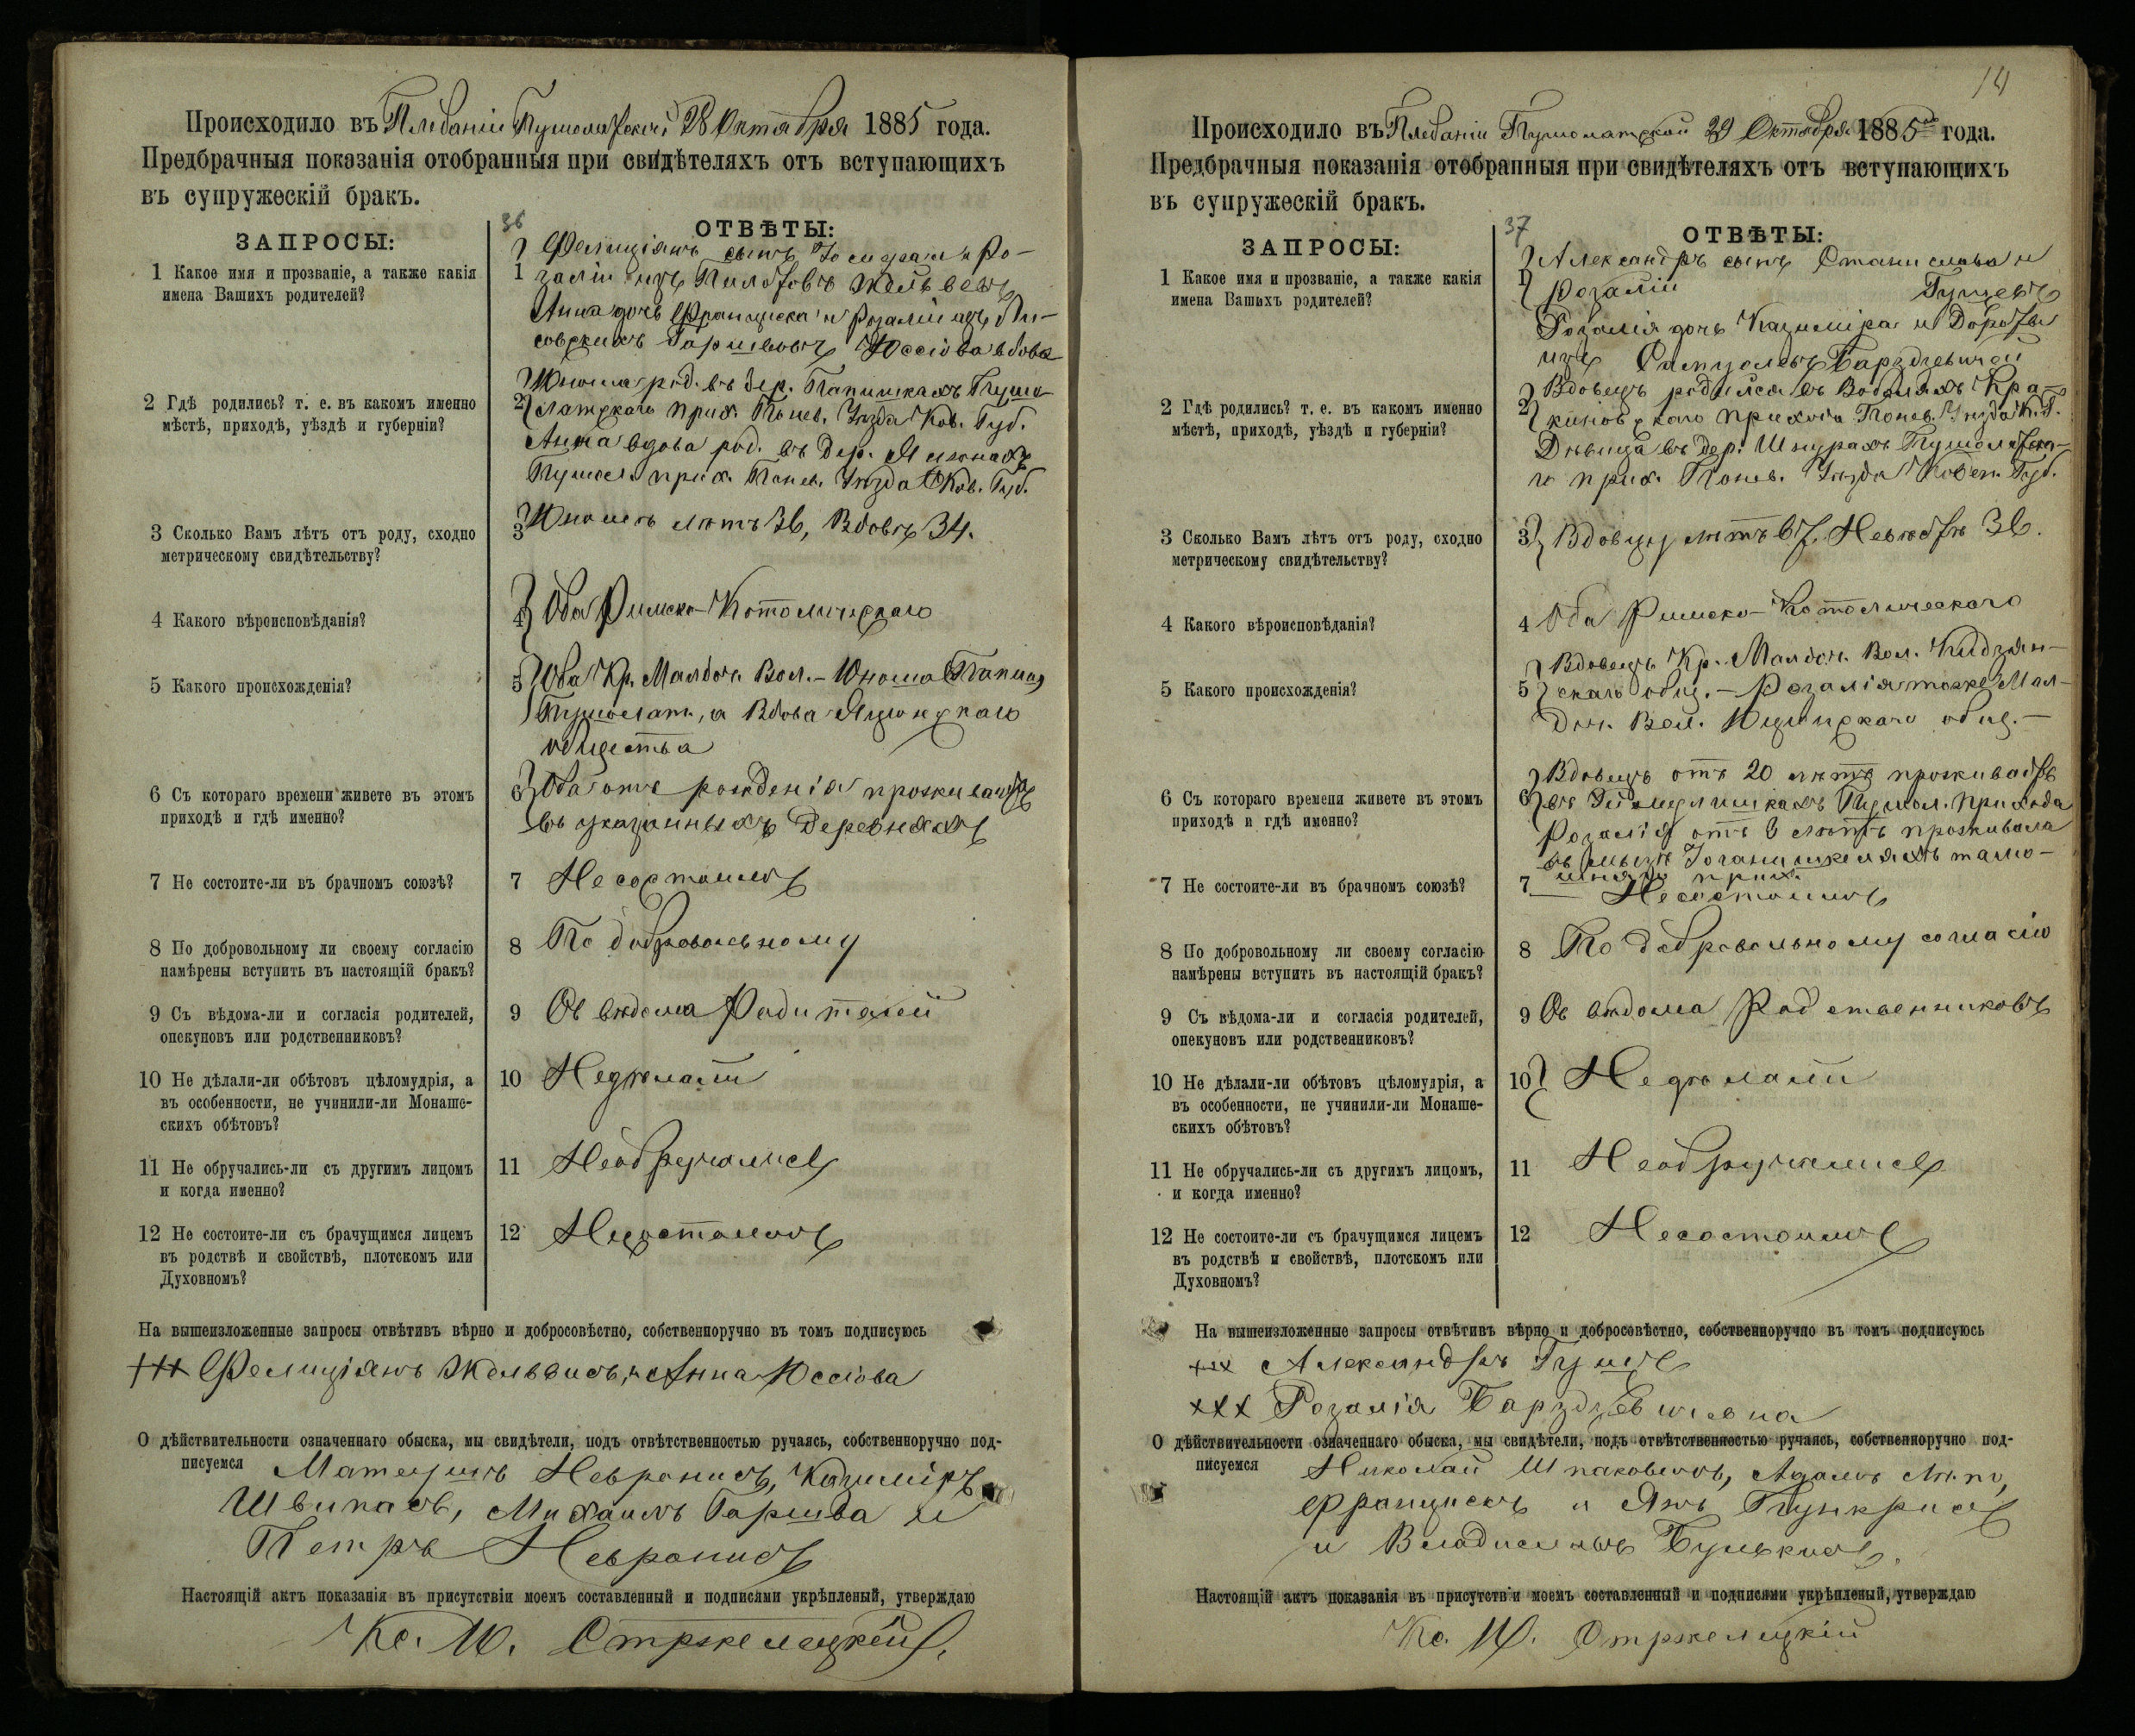 Происходило въ Плебаніи Пушолатской 28 Октября 1885 года.
Предбрачныя показанія отобранныя при свидѣтеляхъ отъ вступающихъ
въ супружескій бракъ.
36
ЗАПРОСЫ:
ОТВѢТЫ:
1 Какое имя и прозваніе, а также какія
имена Вашихъ родителей?
1 Фелиціянъ сынъ и Ро-
заліи изъ Жельвевъ
Анна дочь Франциска и Розаліи изъ Ли-
совскихъ Гаршвовъ Юссіова вдова
2 Гдѣ родились? т. е. въ какомъ именно
мѣстѣ, приходѣ, уѣздѣ и губерніи?
2 Юноша род. въ дер. Папишкахъ Пушо-
латскаго прих. Понев. Уѣзда Ков. Губ.
Анна вдова род. въ дер.
Пушол. прих. Понев. Уѣзда Ков. Губ.
3 Сколько Вамъ лѣтъ отъ роду, сходно
метрическому свидѣтельству?
3 Юношѣ лѣтъ 36, Вдовѣ 34.
4 Какого вѣроисповѣданія?
4 Оба Римско-Католическаго
5 Какого происхожденія?
5 Оба Кр. Вол. - Юноша
Пушолат., а Вдова
общества
6 Съ котораго времени живете въ этомъ
приходѣ и гдѣ именно?
6 Оба отъ рожденія проживаютъ
въ указанныхъ деревняхъ
7 Не состоите-ли въ брачномъ союзѣ?
7 Несостоимъ
8 По добровольному ли своему согласію
намѣрены вступить въ настоящій бракъ?
8 По добровольному
9 Съ вѣдома-ли и согласія родителей,
опекуновъ или родственниковъ?
9 Съ вѣдома Родителей
10 Не дѣлали-ли обѣтовъ цѣломудрія, а
въ особенности, не учинили-ли Монаше-
скихъ обѣтовъ?
10 Недѣлали
11 Не обручались-ли съ другимъ лицомъ
и когда именно?
11 Необручались
12 Не состоите-ли съ брачущимся лицемъ
въ родствѣ и свойствѣ, плотскомъ или
Духовномъ?
12 Несостоимъ
На вышеизложенные запросы отвѣтивъ вѣрно и добросовѣстно, собственноручно въ томъ подписуюсь
+++ Фелиціянъ Жельвисъ, и Анна Юссіова
О дѣйствительности означеннаго обыска, мы свидѣтели, подъ отвѣтственностью ручаясь, собственноручно под-
писуемся Матеушъ Невронисъ, Казиміръ
Швипасъ, Михаилъ Гаршва и
Петръ Невронисъ
Настоящій актъ показанія въ присутствіи моемъ составленный и подписями укрѣпленый, утверждаю
Кс. Ю. Стржелецкій
14
Происходило въ Плебаніи Пушолатской 29 Октября 1885 года.
Предбрачныя показанія отобранныя при свидѣтеляхъ отъ вступающихъ
въ супружескій бракъ.
37
ЗАПРОСЫ:
ОТВѢТЫ:
1 Какое имя и прозваніе, а также какія
имена Вашихъ родителей?
1 Александръ сынъ Станислава и
Розаліи
Розалія дочь Казиміра и Дороты
изъ Барздзевичей
2 Гдѣ родились? т. е. въ какомъ именно
мѣстѣ, приходѣ, уѣздѣ и губерніи?
2 Вдовецъ родился въ Кра-
киновскаго прихода Понев. Уѣзда К. Г.
Дѣвица въ дер. Шнурахъ Пушолатска-
го прих. Понев. Уѣзда Ковен. Губ.
3 Сколько Вамъ лѣтъ отъ роду, сходно
метрическому свидѣтельству?
3 Вдовцу лѣтъ Невѣстѣ 36.
4 Какого вѣроисповѣданія?
4 Оба Римско-Католическаго
5 Какого происхожденія?
5 Вдовецъ Кр. Вол.
скаго общ. - Розалія тоже
Вол. общ. -
6 Съ котораго времени живете въ этомъ
приходѣ и гдѣ именно?
6 Вдовецъ отъ 20 лѣтъ проживаетъ
въ Пушол. прихода
Розалія отъ лѣтъ проживала
въ мызѣ Іоганишкеляхъ тамо-
шняго прих.
7 Не состоите-ли въ брачномъ союзѣ?
7 Несостоимъ
8 По добровольному ли своему согласію
намѣрены вступить въ настоящій бракъ?
8 По добровольному согласію
9 Съ вѣдома-ли и согласія родителей,
опекуновъ или родственниковъ?
9 Съ вѣдома Родственниковъ
10 Не дѣлали-ли обѣтовъ цѣломудрія, а
въ особенности, не учинили-ли Монаше-
скихъ обѣтовъ?
10 Недѣлали
11 Не обручались-ли съ другимъ лицомъ,
и когда именно?
11 Необручались
12 Не состоите-ли съ брачущимся лицемъ
въ родствѣ и свойствѣ, плотскомъ или
Духовномъ?
12 Несостоимъ
На вышеизложенные запросы отвѣтивъ вѣрно и добросовѣстно, собственноручно въ томъ подписуюсь
+++ Александръ
+++ Розалія Барздзевичевна
О дѣйствительности означеннаго обыска, мы свидѣтели, подъ отвѣтственностью ручаясь, собственноручно под-
писуемся Николай Шпаковичъ, Адамъ
Францискъ и Янъ
и Владиславъ
Настоящій актъ показанія въ присутствіи моемъ составленный и подписями укрѣпленый, утверждаю
Кс. Ю. Стржелецкій